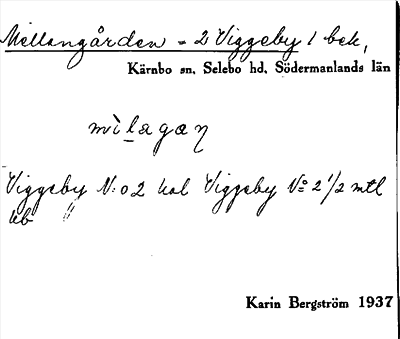 Mellangården = 2 Viggeby 1 bek,
Kärnbo sn, Selebo hd, Södermanlands län
mìlagaɳ
Viggeby N:o 2 kal Viggeby No 2 1/2 mtl
hb "
Karin Bergström 1937